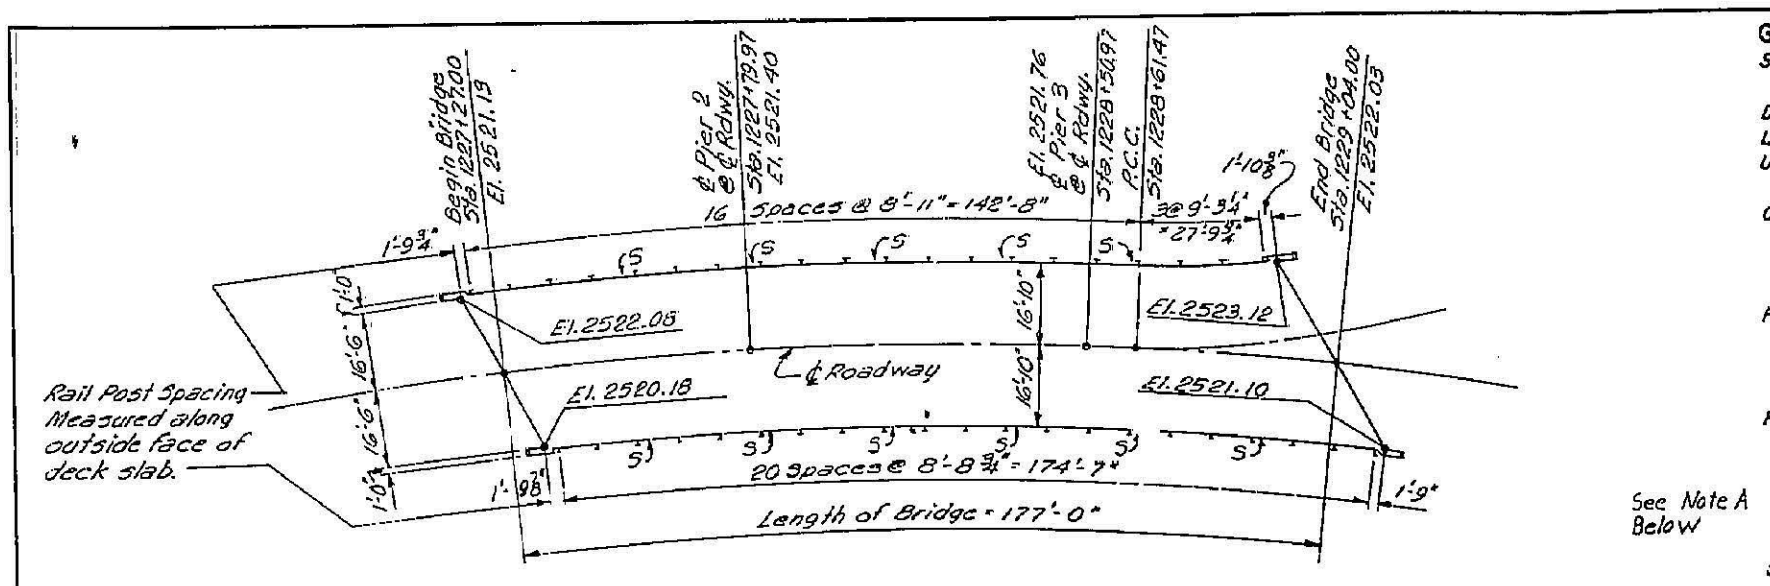 Begin Bridge
Sta. 1227+27.00
El. 2521.19
℄ Pier 2
@ ℄ Rdwy.
Sta. 1227+79.97
El. 2521.40
El. 2521.76
℄ Pier 3
@ ℄ Rdwy.
Sta. 1228+50.97
P.C.C.
Sta. 1228+61.47
End Bridge
Sta. 1229+04.00
El. 2522.03
1'-10 3/8"
16 Spaces @ 8'-11" = 142'-8"
3@ 9'-3 1/4"
= 27'-9 3/4"
1'-9 3/4"
S
S
S
S
S
1'-0"
16'-6"
16'-6"
1'-0"
El. 2522.08
El. 2523.12
16'-10"
16'-10"
℄ Roadway
El. 2520.18
El. 2521.10
Rail Post Spacing
Measured along
outside face of
deck slab.
S
S
S
S
S
S
20 Spaces @ 8'-8 3/4" = 174'-7"
1'-9 7/8"
1'-9"
Length of Bridge = 177'-0"
See Note A
Below